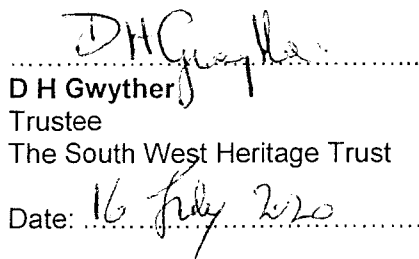 DHGwyther
D H Gwyther
Trustee
The South West Heritage Trust
Date: 16 July 2020